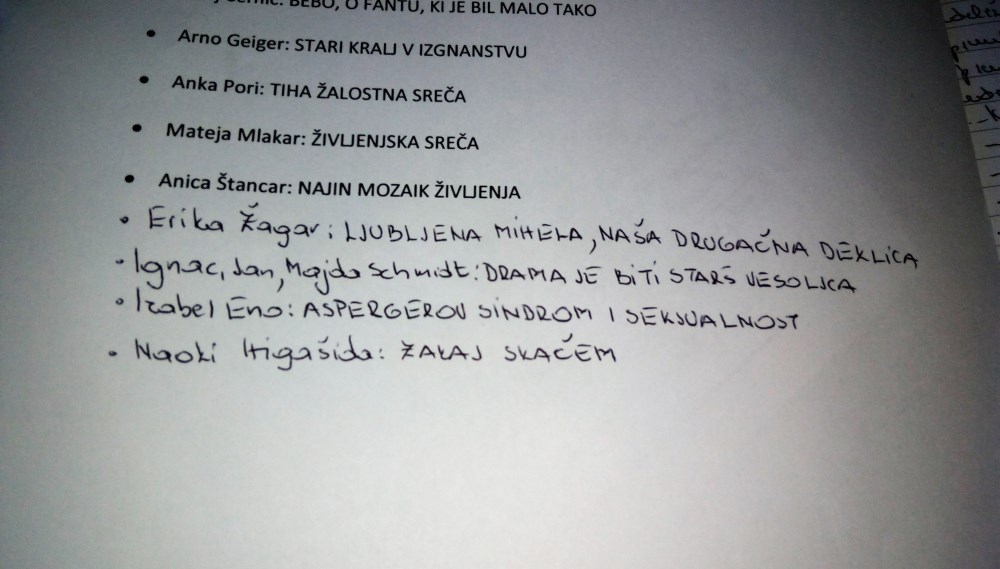 BEBO, O FANTU, KI JE BIL MALO TAKO
• Arno Geiger: STARI KRALJ V IZGNANSTVU
• Anka Pori: TIHA ŽALOSTNA SREČA
• Mateja Mlakar: ŽIVLJENJSKA SREČA
• Anica Štancar: NAJIN MOZAIK ŽIVLJENJA
• Erika Žagar: LJUBLJENA MIHELA, NAŠA DRUGAČNA DEKLICA
• Ignac, Jan, Majda Schmidt: DRAMA JE BITI STARŠ VESOLJCA
• Izabel Eno: ASPERGEROV SINDROM I SEKSUALNOST
• Naoki Higašida: ZAKAJ SKAČEM